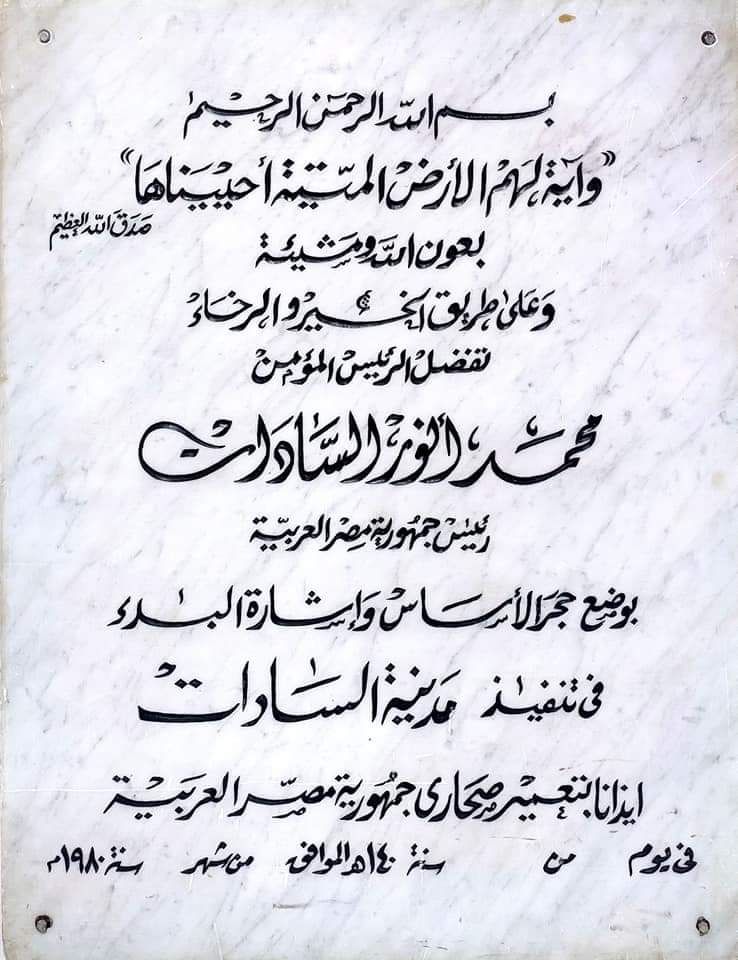 بسم الله الرحمن الرحيم
"وآية لهم الأرض الميتة أحييناها"
صدق الله العظيم
بعون الله ومشيئة
وعلى طريق الخير والرخاء
تفضل الرئيس المؤمن
محمد أنور السادات
رئيس جمهورية مصر العربية
بوضع حجر الأساس وإشارة البدء
فى تنفيذ مدينة السادات
ايذانا بتعمير صحارى جمهورية مصر العربية
فى يوم من سنة ١٤٠ هـ الموافق من شهر سنة ١٩٨٠م